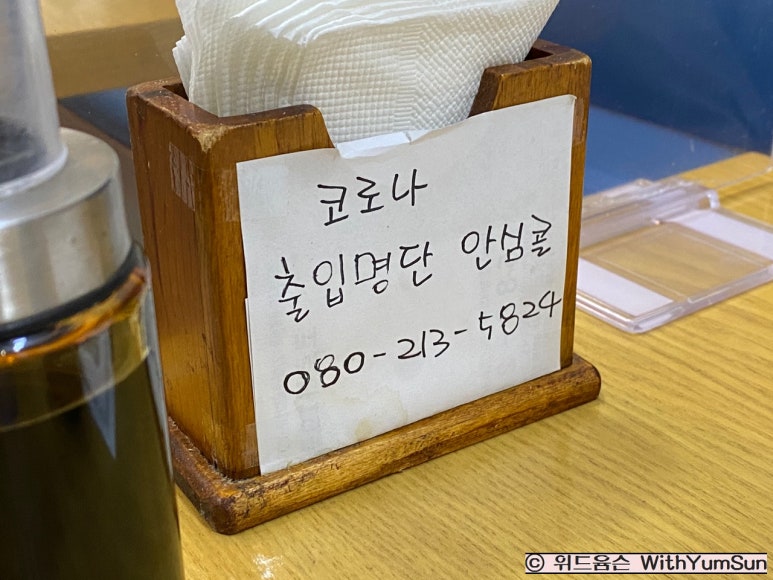 코로나
출입명단 안심콜
080-213-5824
ⓒ 위드윰슨 WithYumSun